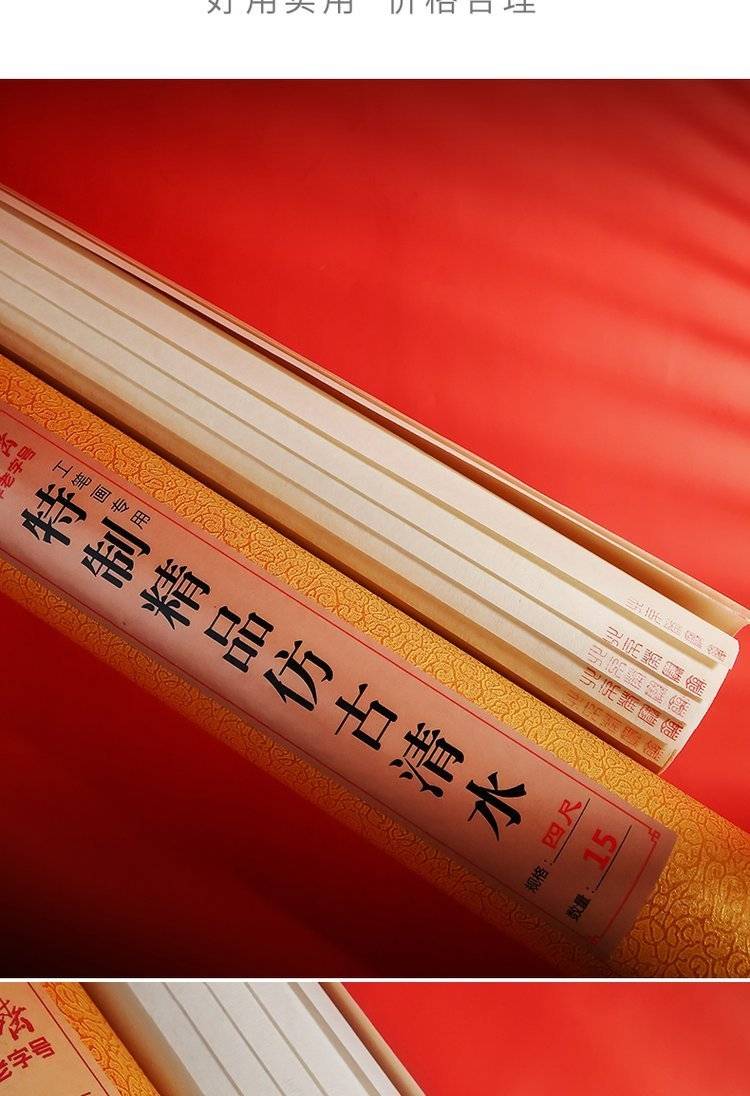 好用实用 价格合理
老字号
工笔画专用
特制精品仿古清水
规格：四尺
数量：15
老字号